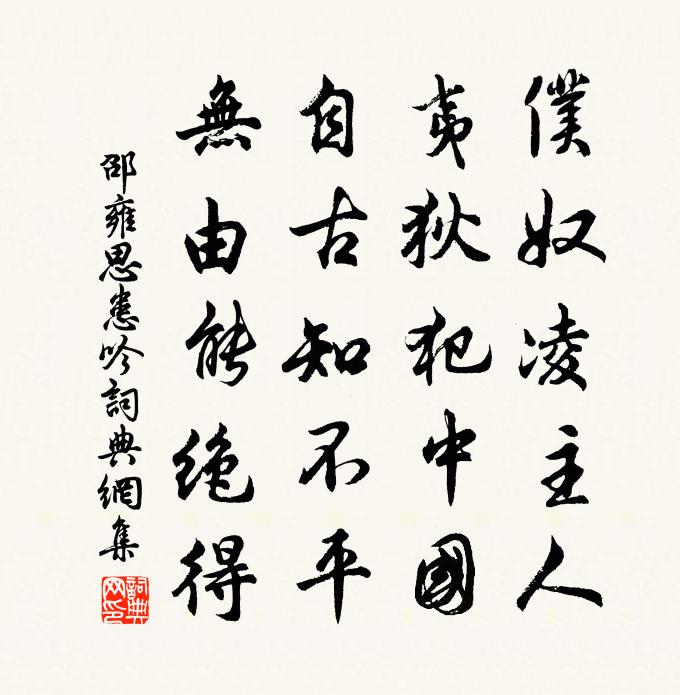 僕奴凌主人
夷狄犯中國
自古知不平
無由能絕得
邵雍思患吟詞典網集
詞典網印